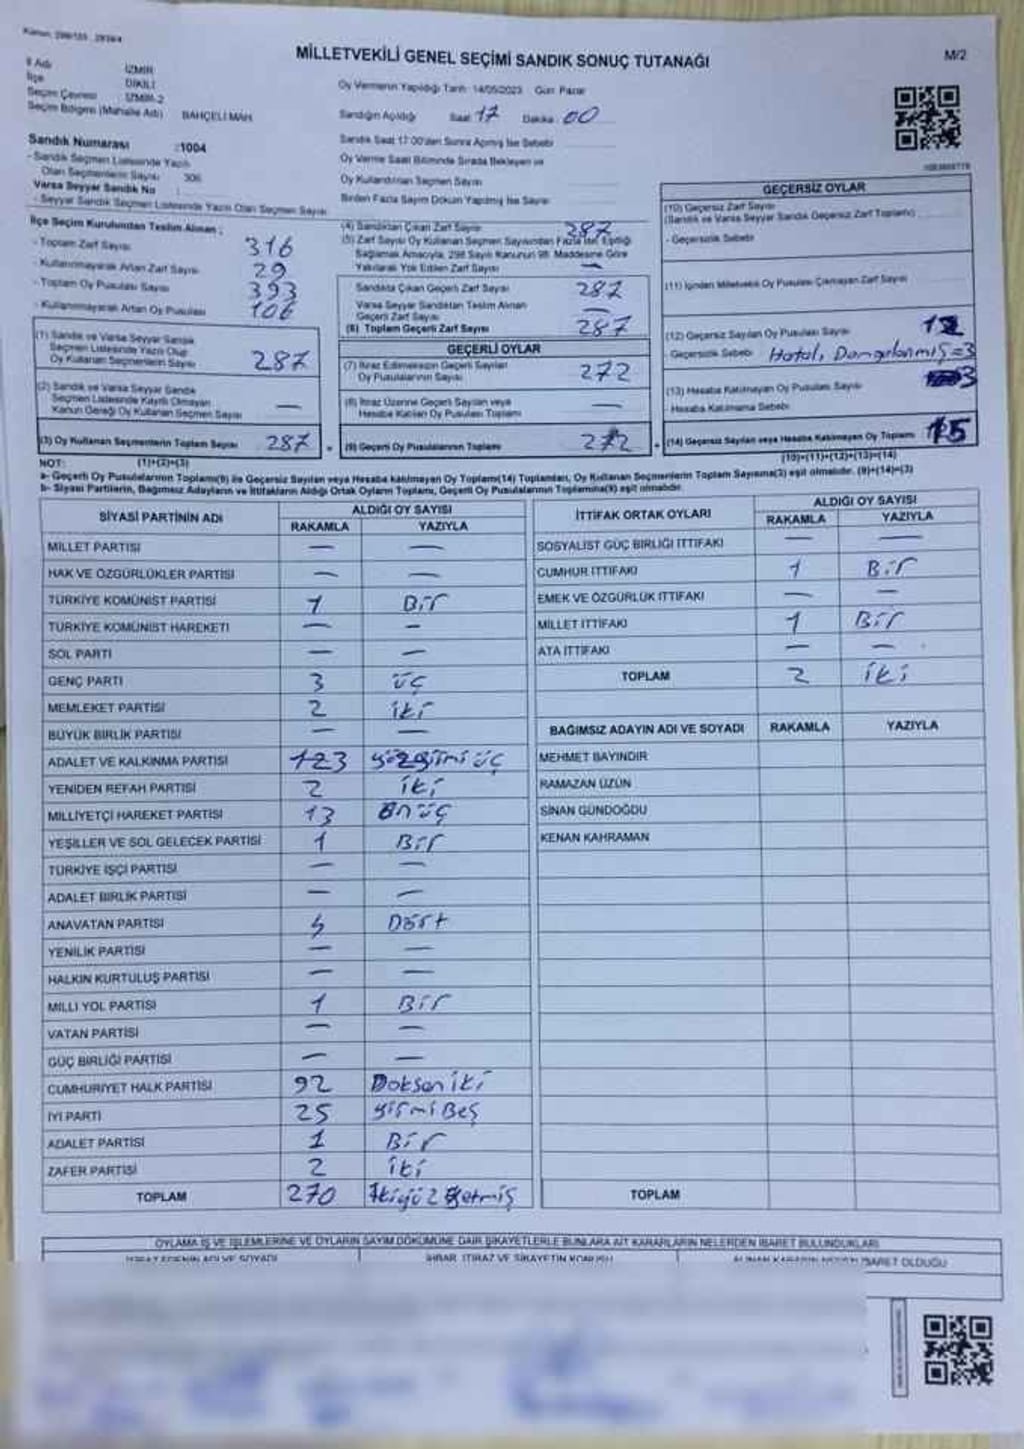 MİLLETVEKİLİ GENEL SEÇİMİ SANDIK SONUÇ TUTANAĞI
M/2
İl Adı İZMİR
İlçe DİKİLİ
Seçim Çevresi İZMİR-2
Seçim Bölgesi (Mahalle Adı) BAHÇELİ MAH.
Sandık Numarası :1004
- Sandık Seçmen Listesinde Yazılı
Olan Seçmenlerin Sayısı 306
Varsa Seyyar Sandık No :
- Seyyar Sandık Seçmen Listesinde Yazılı Olan Seçmen Sayısı
İlçe Seçim Kurulundan Teslim Alınan ;
- Toplam Zarf Sayısı 316
- Kullanılmayarak Artan Zarf Sayısı 29
- Toplam Oy Pusulası Sayısı 393
- Kullanılmayarak Artan Oy Pusulası 106
(1) Sandık ve Varsa Seyyar Sandık
Seçmen Listesinde Yazılı Olup
Oy Kullanan Seçmenlerin Sayısı 287
(2) Sandık ve Varsa Seyyar Sandık
Seçmen Listesinde Kayıtlı Olmayan
Kanun Gereği Oy Kullanan Seçmen Sayısı —
(3) Oy Kullanan Seçmenlerin Toplam Sayısı 287
(1)+(2)=(3)
Oy Vermenin Yapıldığı Tarih: 14/05/2023 Gün: Pazar
Sandığın Açıldığı Saat: 17 Dakika: 00
Sandık Saat 17:00'den Sonra Açılmış İse Sebebi
Oy Verme Saati Bitiminde Sırada Bekleyen ve
Oy Kullandırılan Seçmen Sayısı
Birden Fazla Sayım Döküm Yapılmış İse Sayısı
(4) Sandıktan Çıkan Zarf Sayısı 287
(5) Zarf Sayısı Oy Kullanan Seçmen Sayısından Fazla İse, Eşitliği
Sağlamak Amacıyla, 298 Sayılı Kanunun 98. Maddesine Göre
Yakılarak Yok Edilen Zarf Sayısı —
Sandıkta Çıkan Geçerli Zarf Sayısı 287
Varsa Seyyar Sandıktan Teslim Alınan
Geçerli Zarf Sayısı —
(6) Toplam Geçerli Zarf Sayısı 287
GEÇERLİ OYLAR
(7) İtiraz Edilmeksizin Geçerli Sayılan
Oy Pusulalarının Sayısı 272
(8) İtiraz Üzerine Geçerli Sayılan veya
Hesaba Katılan Oy Pusulası Toplamı —
(9) Geçerli Oy Pusulalarının Toplamı 272
GEÇERSİZ OYLAR
(10) Geçersiz Zarf Sayısı
(Sandık ve Varsa Seyyar Sandık Geçersiz Zarf Toplamı)
- Geçersizlik Sebebi
(11) İçinden Milletvekili Oy Pusulası Çıkmayan Zarf Sayısı
(12) Geçersiz Sayılan Oy Pusulası Sayısı 12
- Geçersizlik Sebebi Hatalı Damgalanmış=3
(13) Hesaba Katılmayan Oy Pusulası Sayısı 3
- Hesaba Katılmama Sebebi
(14) Geçersiz Sayılan veya Hesaba Katılmayan Oy Toplamı 15
(10)+(11)+(12)+(13)=(14)
NOT:
a- Geçerli Oy Pusulalarının Toplamı(9) ile Geçersiz Sayılan veya Hesaba katılmayan Oy Toplamı(14) Toplamları, Oy Kullanan Seçmenlerin Toplam Sayısına(3) eşit olmalıdır. (9)+(14)=(3)
b- Siyasi Partilerin, Bağımsız Adayların ve İttifakların Aldığı Ortak Oyların Toplamı, Geçerli Oy Pusulalarının Toplamına(9) eşit olmalıdır.
SİYASİ PARTİNİN ADI ALDIĞI OY SAYISI
RAKAMLA YAZIYLA
MİLLET PARTİSİ — —
HAK VE ÖZGÜRLÜKLER PARTİSİ — —
TÜRKİYE KOMÜNİST PARTİSİ 1 Bir
TÜRKİYE KOMÜNİST HAREKETİ — —
SOL PARTİ — —
GENÇ PARTİ 3 üç
MEMLEKET PARTİSİ 2 iki
BÜYÜK BİRLİK PARTİSİ — —
ADALET VE KALKINMA PARTİSİ 123 yüzyirmi üç
YENİDEN REFAH PARTİSİ 2 iki
MİLLİYETÇİ HAREKET PARTİSİ 13 onüç
YEŞİLLER VE SOL GELECEK PARTİSİ 1 Bir
TÜRKİYE İŞÇİ PARTİSİ — —
ADALET BİRLİK PARTİSİ — —
ANAVATAN PARTİSİ 4 Dört
YENİLİK PARTİSİ — —
HALKIN KURTULUŞ PARTİSİ — —
MİLLİ YOL PARTİSİ 1 Bir
VATAN PARTİSİ — —
GÜÇ BİRLİĞİ PARTİSİ — —
CUMHURİYET HALK PARTİSİ 92 Doksan iki
İYİ PARTİ 25 yirmi Beş
ADALET PARTİSİ 1 Bir
ZAFER PARTİSİ 2 iki
TOPLAM 270 ikiyüz yetmiş
İTTİFAK ORTAK OYLARI ALDIĞI OY SAYISI
RAKAMLA YAZIYLA
SOSYALİST GÜÇ BİRLİĞİ İTTİFAKI — —
CUMHUR İTTİFAKI 1 Bir
EMEK VE ÖZGÜRLÜK İTTİFAKI — —
MİLLET İTTİFAKI 1 Bir
ATA İTTİFAKI — —
TOPLAM 2 iki
BAĞIMSIZ ADAYIN ADI VE SOYADI RAKAMLA YAZIYLA
MEHMET BAYINDIR
RAMAZAN UZUN
SİNAN GÜNDOĞDU
KENAN KAHRAMAN
TOPLAM
OYLAMA İŞ VE İŞLEMLERİNE VE OYLARIN SAYIM DÖKÜMÜNE DAİR ŞİKAYETLERLE BUNLARA AİT KARARLARIN NELERDEN İBARET BULUNDUKLARI
İHBAR, İTİRAZ VE ŞİKAYETİN KONUSU